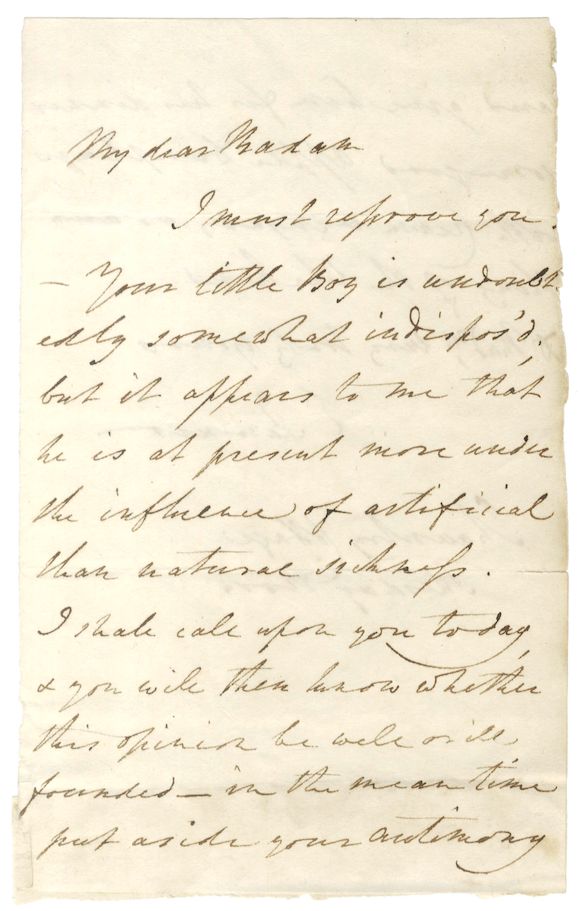 My dear Madam
I must reprove you.
– Your little Boy is undoubt
edly somewhat indispos'd,
but it appears to me that
he is at present more under
the influence of artificial
than natural sickness.
I shall call upon you today,
& you will then know whether
this opinion be well or ill
founded – in the mean time
put aside your antimony